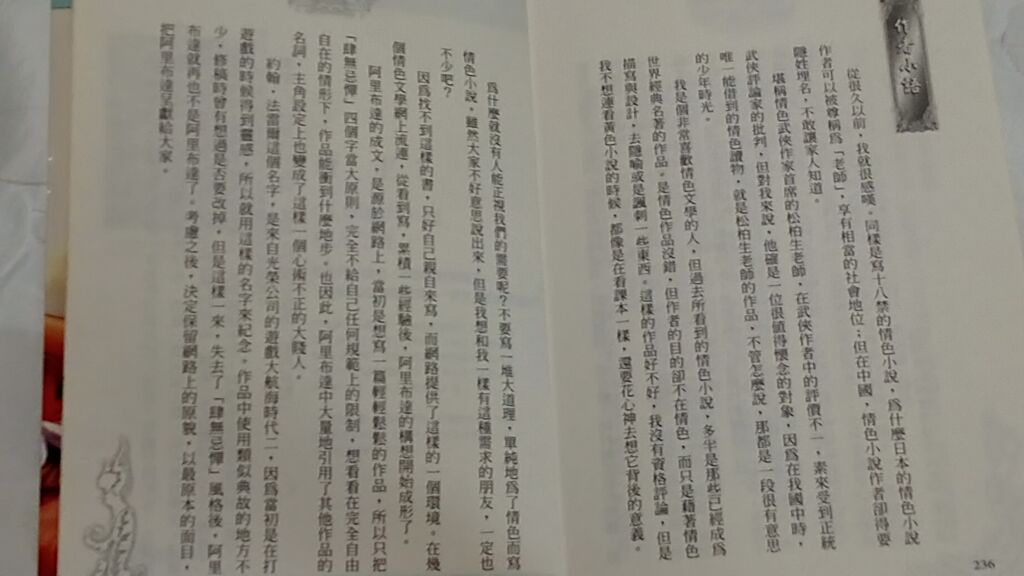 作者小語
從很久以前，我就很感嘆。同樣是寫十八禁的情色小說，為什麼日本的情色小說
作者可以被尊稱為「老師」，享有相當的社會地位；但在中國，情色小說作者卻得要
隱姓埋名，不敢讓家人知道。
堪稱情色武俠作家首席的松柏生老師，在武俠作者中的評價不一，素來受到正統
武俠評論家的批判，但對我來說，他確是一位很值得懷念的對象，因為在我國中時，
唯一能借到的情色讀物，就是松柏生老師的作品，不管怎麼說，那都是一段很有意思
的少年時光。
我是個非常喜歡情色文學的人，但過去所看到的情色小說，多半是那些已經成為
世界經典名著的作品。是情色作品沒錯，但作者的目的卻不在情色，而只是藉著情色
描寫與設計，去隱喻或是諷刺一些東西。這樣的作品好不好，我沒有資格評論，但是
我不想連看黃色小說的時候，都像是在看課本一樣，還要花心神去想它背後的意義。
236
為什麼就沒有人能正視我們的需要呢？不要寫一堆大道理，單純地為了情色而寫
情色小說，雖然大家不好意思說出來，但是我想和我一樣有這種需求的朋友，一定也
不少吧？
因為找不到這樣的書，只好自己親自來寫，而網路提供了這樣的一個環境。在幾
個情色文學網上流連，從看到寫，累積一些經驗後，阿里布達的構想開始成形了。
阿里布達的成文，是源於網路上，當初是想寫一篇輕輕鬆鬆的作品，所以只把
「肆無忌憚」四個字當大原則，完全不給自己任何規範上的限制，想看看在完全自由
自在的情形下，作品能衝到什麼地步。也因此，阿里布達中大量地引用了其他作品的
名詞，主角設定上也變成了這樣一個心術不正的大賤人。
約翰．法雷爾這個名字，是來自光榮公司的遊戲大航海時代二，因為當初是在打
遊戲的時候得到靈感，所以就用這樣的名字來紀念。作品中使用類似典故的地方不
少，修稿時曾有想過是否要改掉，但是這樣一來，失去了「肆無忌憚」風格後，阿里
布達就再也不是阿里布達了。考慮之後，決定保留網路上的原貌，以最原本的面目，
把阿里布達呈獻給大家。